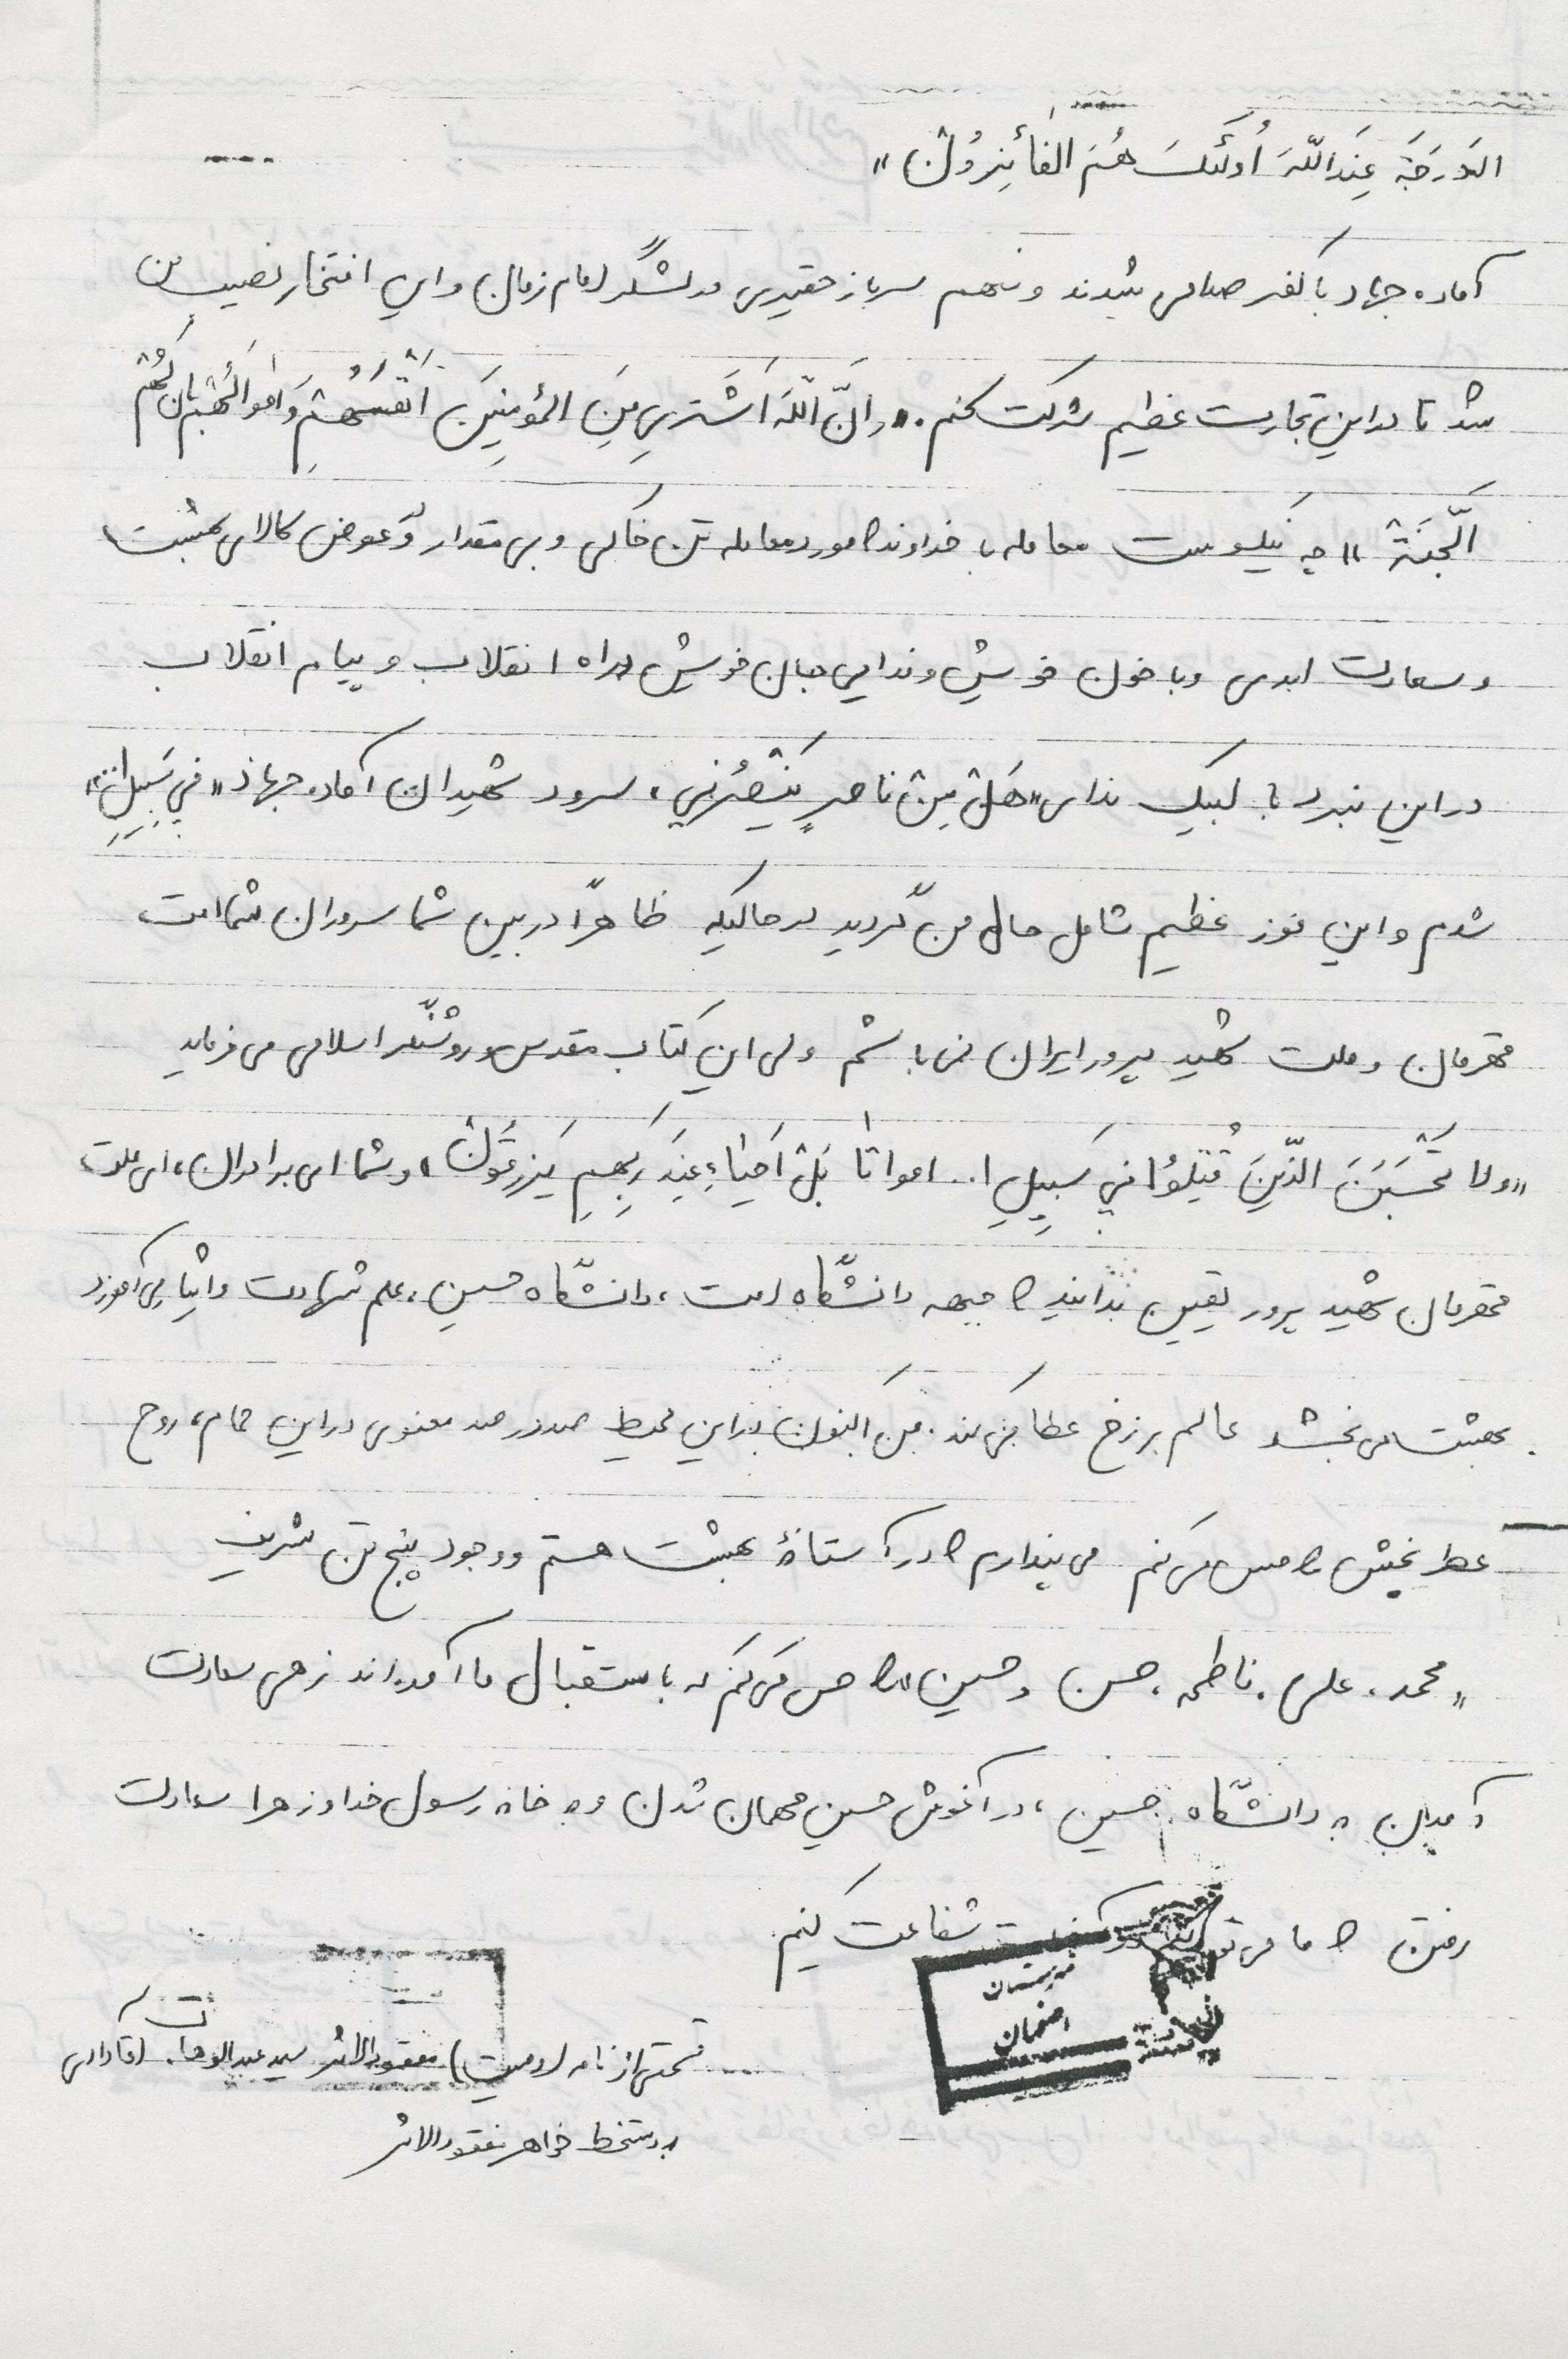 الدَرَجَة عِندَاللّهِ أُولئِكَ هُمُ الفائِزُون »
آماده جهاد با کفر صدامی شدند و منهم سرباز حقیری در لشگر امام زمان و این افتخار نصیب من
شد تا در این تجارت عظیم شرکت کنم. « اِنَّ اللّهَ اَشتَری مِنَ المؤمِنینَ اَنفُسَهُم وَ اَموالَهُم بِاَن لَهُم
الَّجَنَة » چه نیکوست معامله با خداوند که مورد معامله تن خاکی و بی مقدار و عوض کالای بهشت
و سعادت ابدی و با خون خویش و ندایی جان خویش راه انقلاب و پیام انقلاب
در این نبرد با لبیک ندای «هَل مِن ناصرٍ یَنصُرنی» سرود شهیدان آماده جهاد «فی سَبیلِ ا...»
شدم و این فوز عظیم شامل حال من گردید در حالیکه ظاهراً در بین شما سروران شما امت
قهرمان و ملت شهید پرور ایران نمی باشم ولی این کتاب مقدس و روشنگر اسلامی می فرماید
«ولا تَحسَبَنَ الذّینَ قُتِلوُا فی سَبیلِ ا.. امواتا بَل اَحیاء عِندَ رَبِهِم یَرزِقَوُن» و شما ای برادران، ای ملت
قهرمان شهید پرور یقین بدانید که جبهه دانشگاه است، دانشگاه حسین، علم شهادت و ایثار می آموزد
بهشت می بخشد عالم برزخ عطا می کند. من اکنون در این محیط صد در صد معنوی در این حمام، روح
عطر بخش را حس می کنم می پندارم که در آستانهٔ بهشت هستم و وجود پنج تن شریف
« محمد، علی، فاطمه، حسن و حسین» را حس می کنم که با ستقبال ما آمده اند زهی سعادت
آمدن به دانشگاه حسین، در آغوش حسین مهمان شدن و به خانه رسول خدا و زهرا سعادت
رفتن که ما می شفاعت کنیم
شهرستان
اصفهان
.... قسمتی از نامه (وصیت) مفقودالاثر سید عبدالوهاب آقادائی
به دستخط خواهر مفقودالاثر